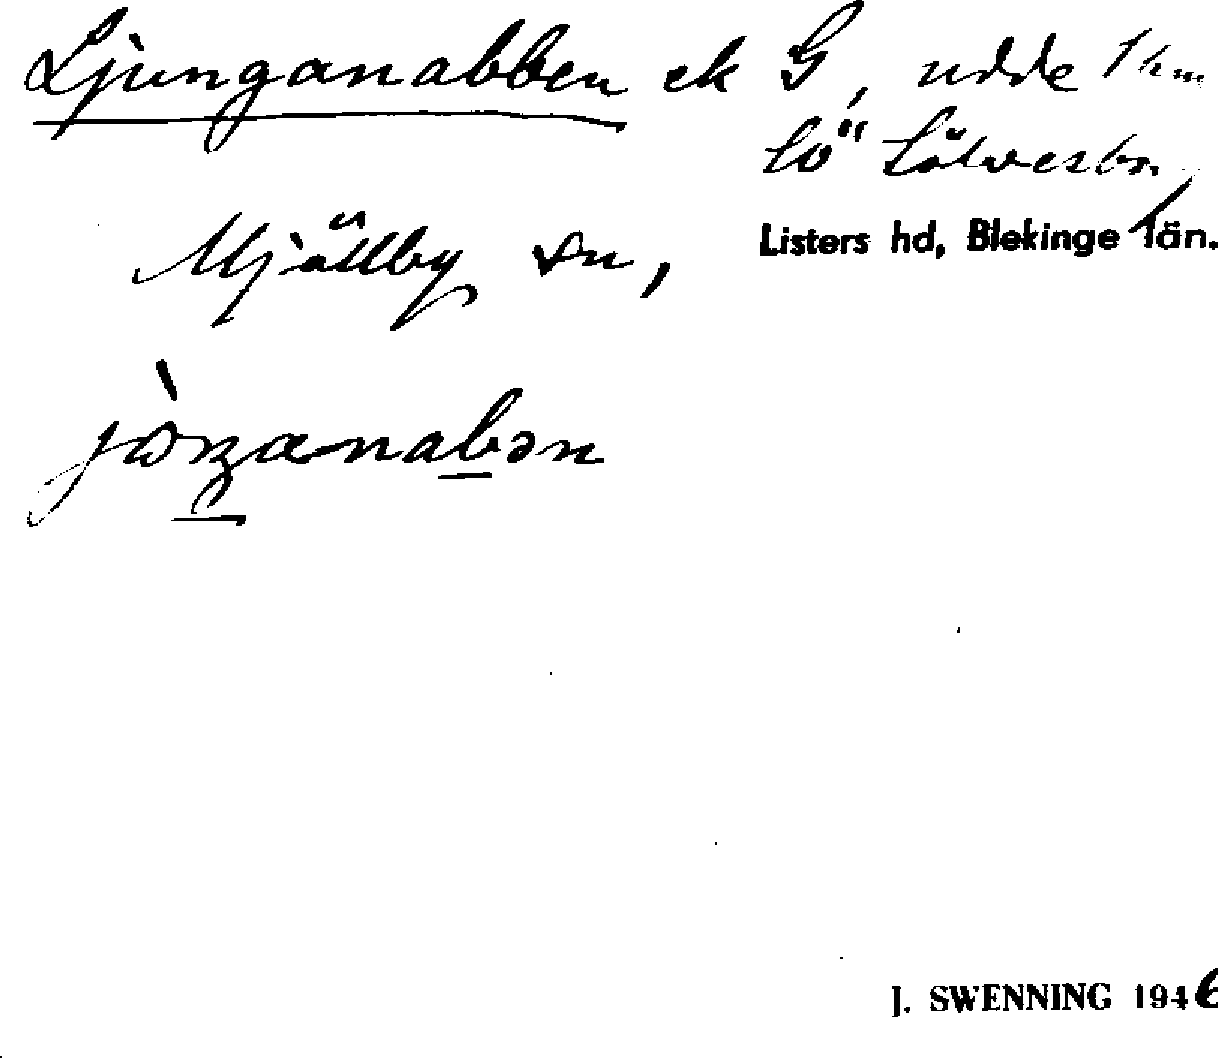 Ljunganabben ek G, udde 1 km
SÖ Sölvesbr.
Mjällby sn,
Listers hd, Blekinge län.
J. SWENNING 1946